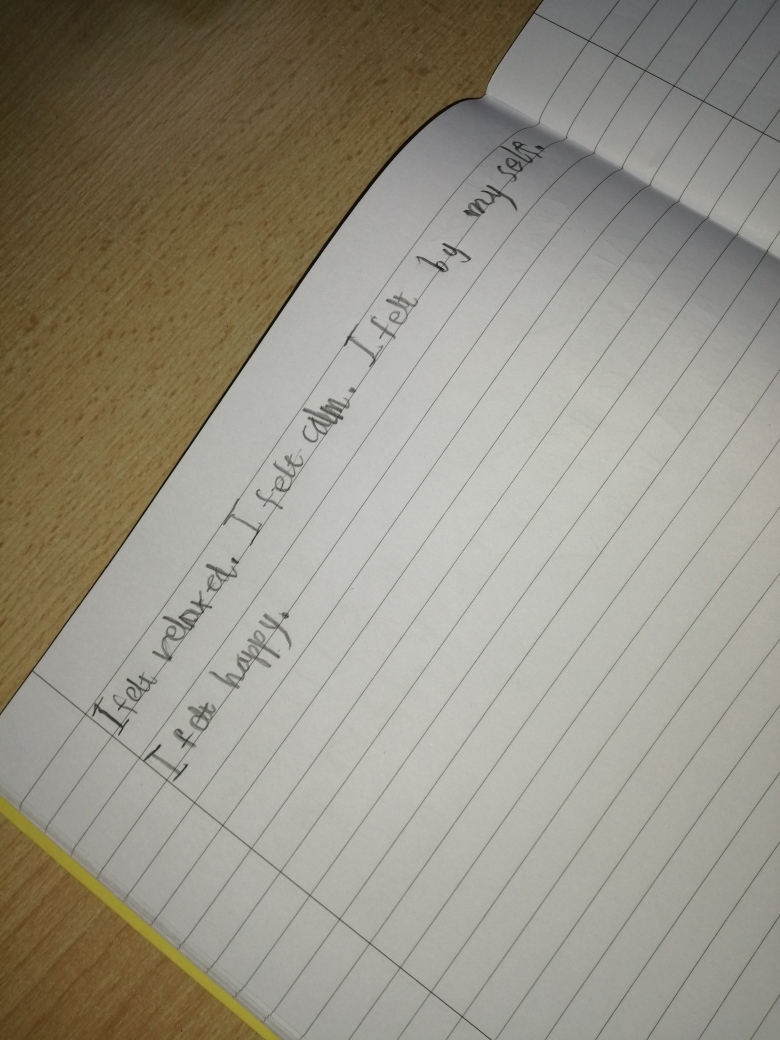 I felt relaxed. I felt calm. I felt by my self.
I felt happy.